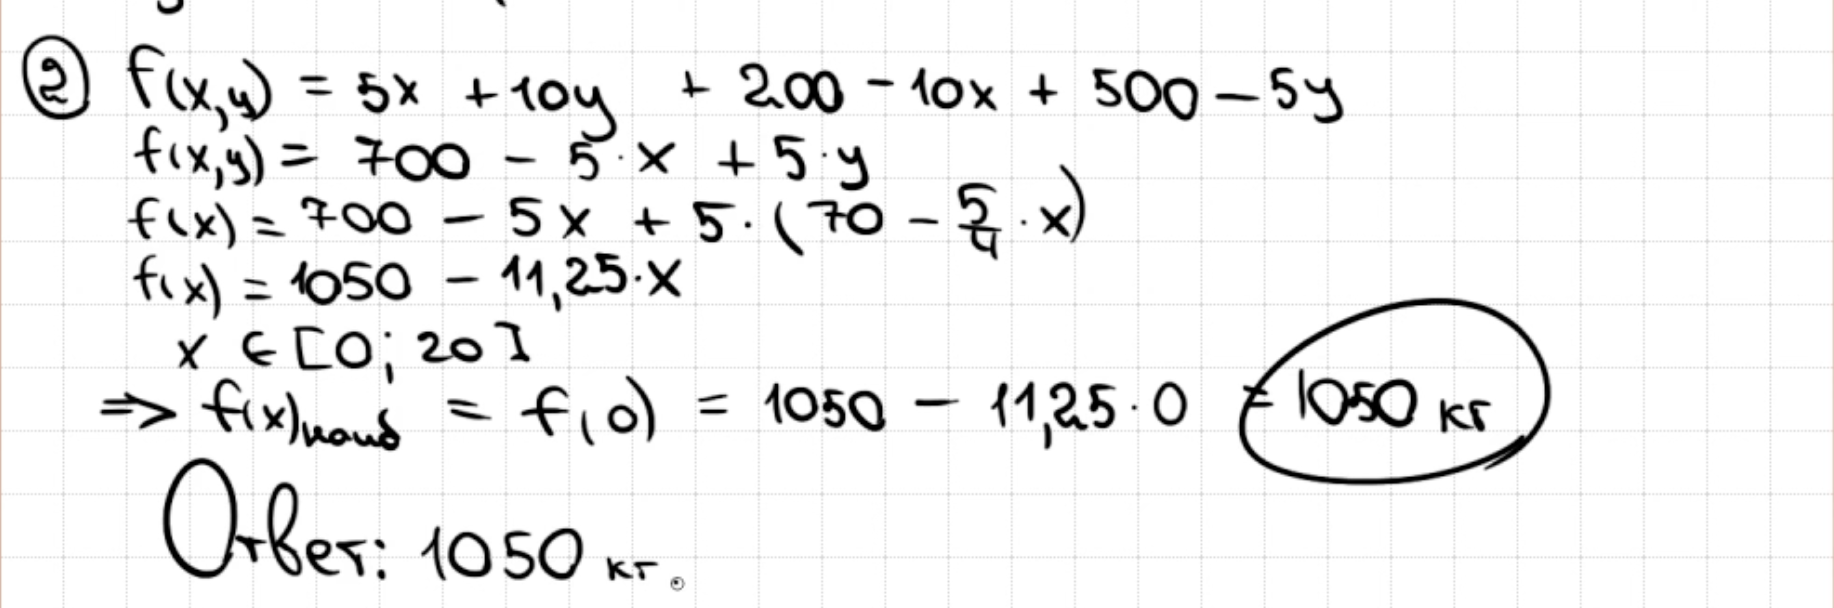 ② f(x,y) = 5x + 10y + 200 - 10x + 500 - 5y
f(x,y) = 700 - 5·x + 5·y
f(x) = 700 - 5x + 5·(70 - 5/4·x)
f(x) = 1050 - 11,25·x
x ∈ [0; 20]
=> f(x)наиб = f(0) = 1050 - 11,25·0 = 1050 кг
Ответ: 1050 кг.